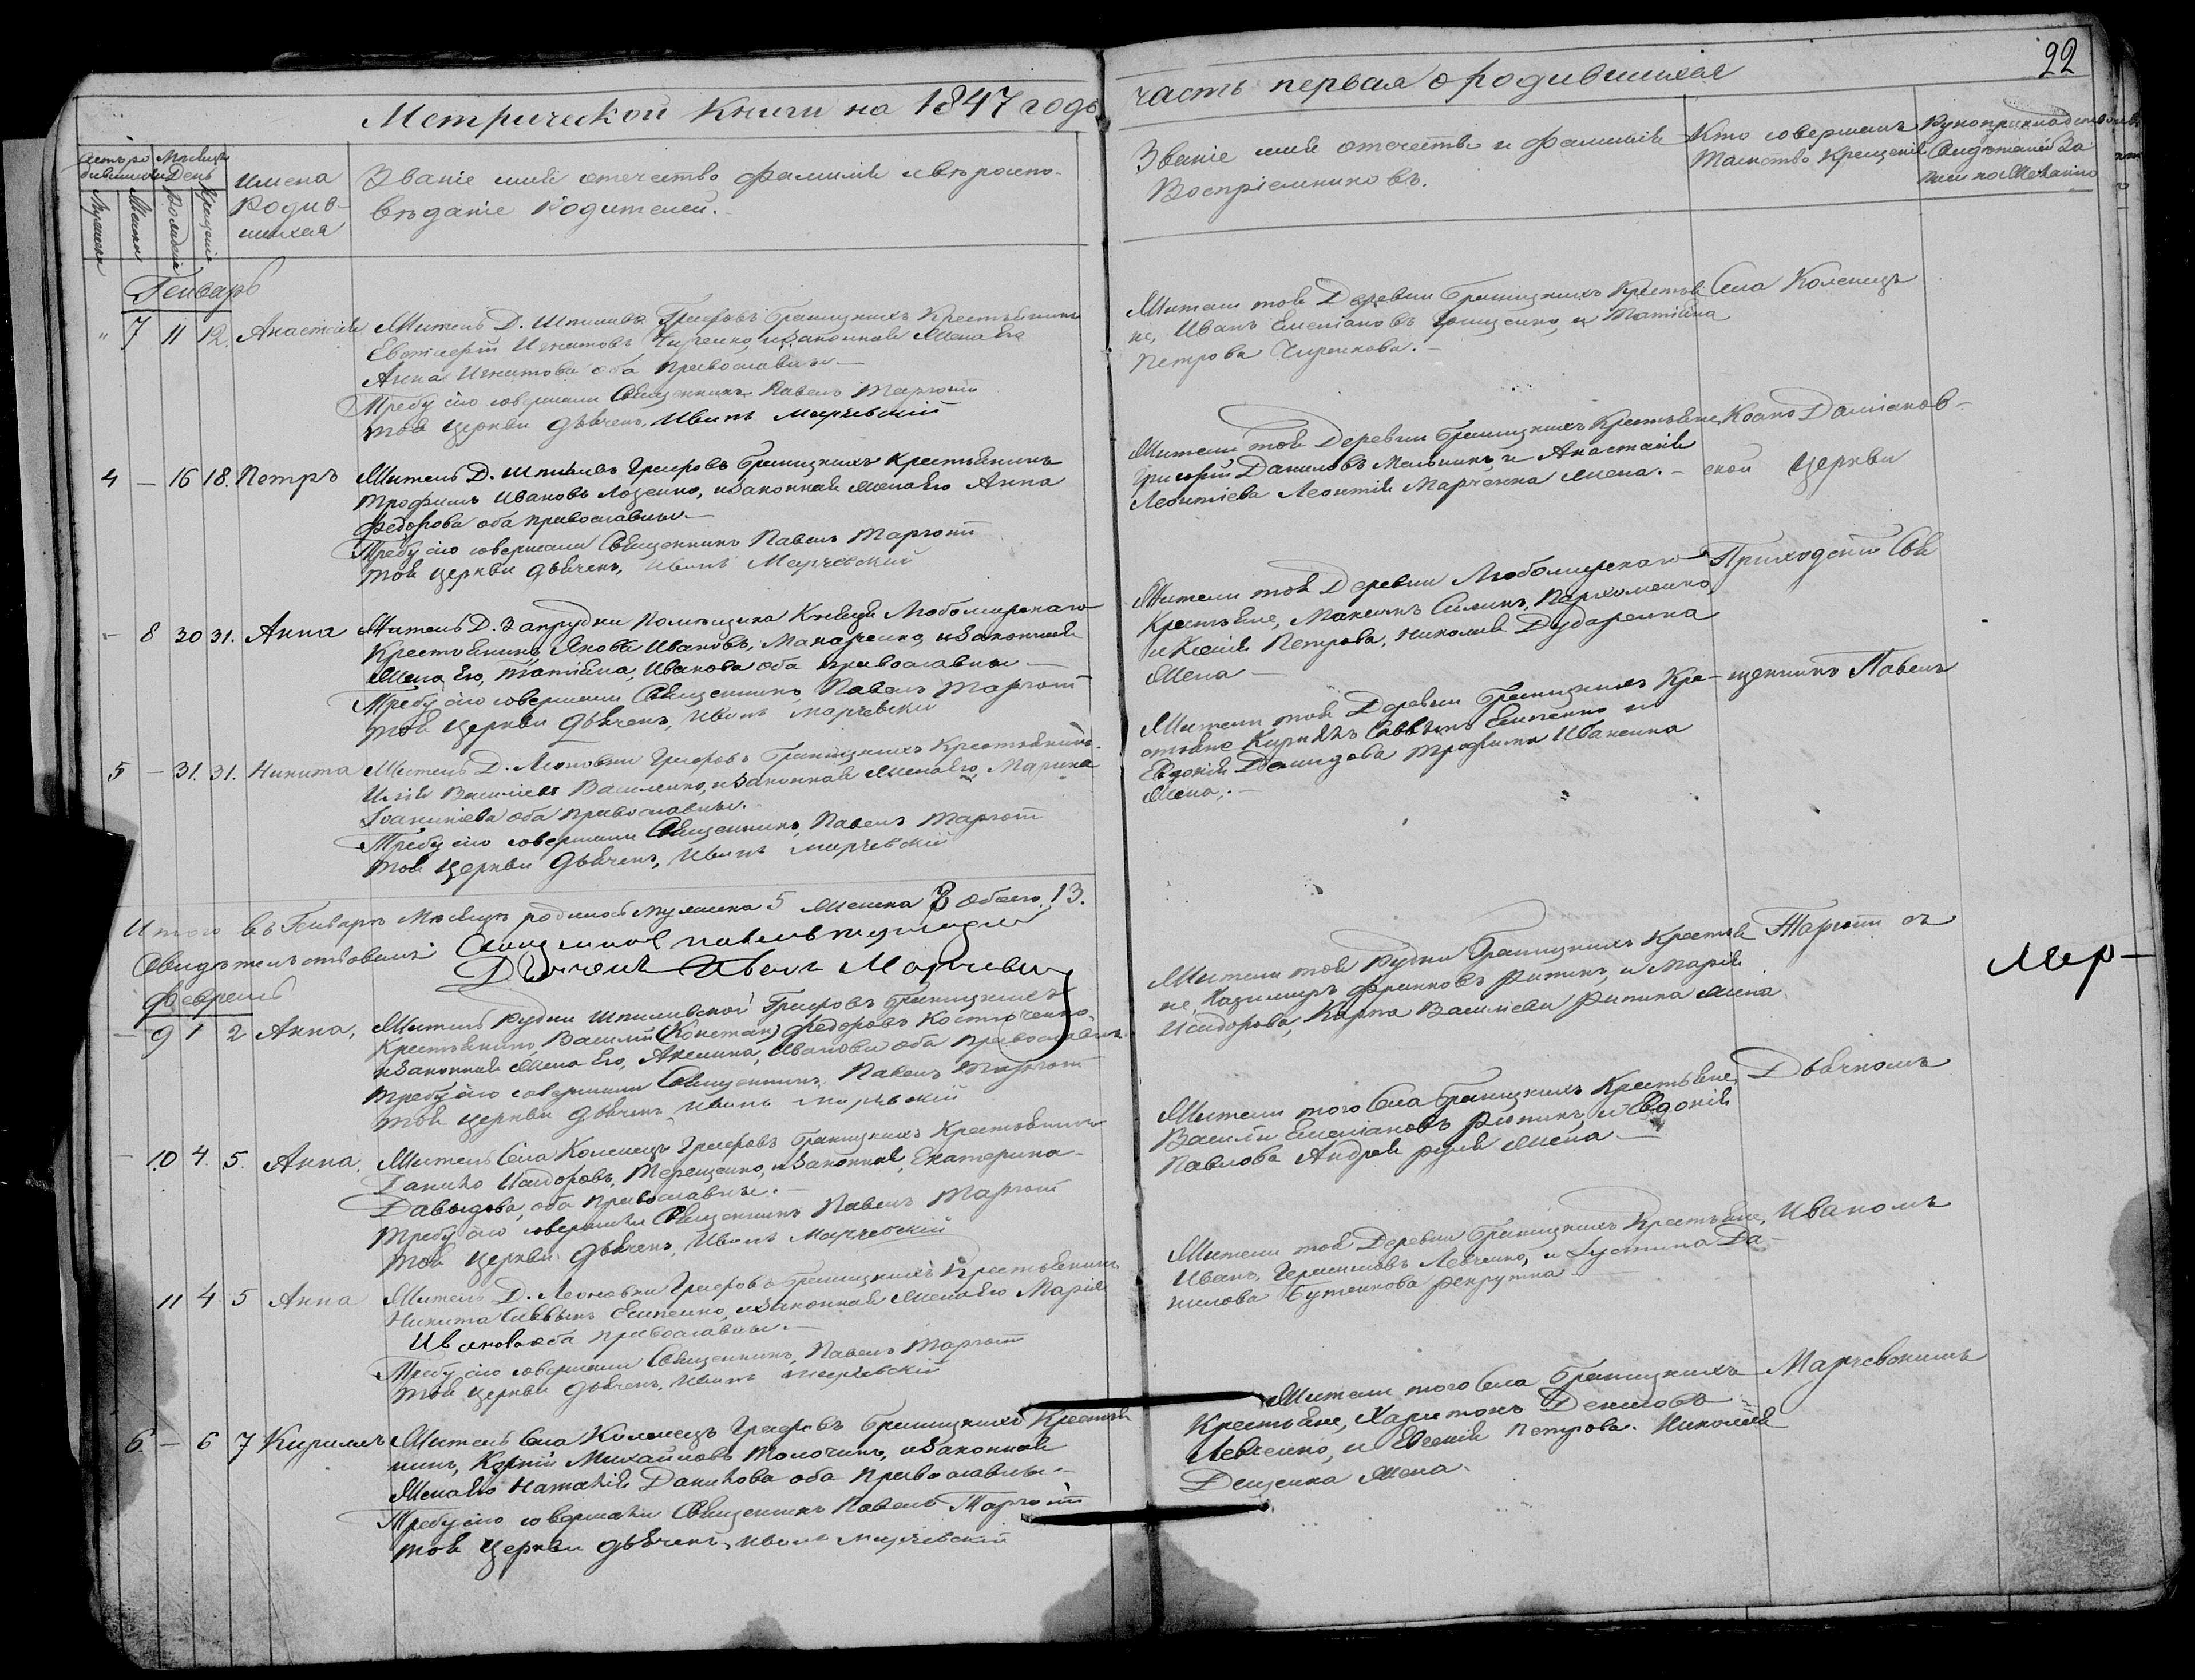 Метрической Книги на 1847 годъ
часть первая о родившихся
22
Мѣсяцъ День
Имена Родив-шихся
Званіе имя отечество фамилія и вѣроиспо-
вѣданіе Родителей.
Званіе имя отечество и фамилія
Воспріемниковъ.
Кто совершалъ
Таинство Крещенія
Генварь
" 7 11 12. Анастасія
Житель Д. Шпилева Графовъ Браницкихъ Крестьянинъ
Евстафій Игнатовъ и законная жена Его
Анна Игнатова оба православны
Требу сію совершали Священникъ Павелъ Таргоній
той церкви дьячекъ, Иванъ Марчевскій
Жители той Деревни Браницкихъ Крестья
не, Иванъ Емеліановъ Грищенко, и Татіана
Петрова
Села Коленецъ
4 — 16 18. Петръ
Житель Д. Шпилева Графовъ Браницкихъ Крестьянинъ
Трофимъ Ивановъ Лозенко, и законная жена его Анна
Федорова оба православны
Требу сію совершали Священникъ Павелъ Таргоній
той церкви дьячекъ, Иванъ Марчевскій
Жители той Деревни Браницкихъ Крестьяне,
Григорій Даниловъ Мельникъ, и Анастасія
Леонтіева Леонтія Марченка жена.
Козмо Даміанов-
ской церкви
- 8 30 31. Анна
Житель Д. Запрудки Помѣщика Князя Любомирскаго
Крестьянинъ, Яковъ Ивановъ, Макаренко, и законная
жена Его, Татіана, Иванова оба православны
Требу сію совершали Священникъ, Павелъ Таргоній
той церкви дьячекъ, Иванъ Марчевскій
Жители той Деревни Любомирскаго
Крестьяне, Пархоменко
и Ксенія Петрова, Николая Дударенка
жена
Приходскій Свя
5 — 31. 31. Никита
Житель Д. Леоновки Графовъ Браницкихъ Крестьянинъ
Илія Василіевъ Василенко, и законная жена его, Марина
оба православны.
Требу сію совершали Священникъ, Павелъ Таргоній
той церкви дьячекъ, Иванъ Марчевскій
Жители той Деревни Браницкихъ Кре-
стьяне Кириллъ Саввинъ Емпенко и
Евдокія Давидова Трофима Иваненка
жена,.
щенникъ Павелъ
Итого въ Генварѣ Мѣсяцѣ родилось мужеска 5 женска 8 обоего 13.
Свидѣтельствовали Священникъ Павелъ Таргоній
Дьячекъ Иванъ Марчевскій
Февраль
— 9 1 2 Анна,
Житель Рудни Шпилевской Графовъ Браницкихъ
Крестьянинъ, Василій Федоровъ Костюченко
и законная жена Его, Акилина, Иванова оба православны
Требу сію совершали Священникъ Павелъ Таргоній
той церкви дьячекъ Иванъ Марчевскій
Жители той Рудни Браницкихъ Крестья
не, Казимиръ и Марія
Исидорова, Карпа Василіева жена
Таргоній съ
Мар-
— 10 4. 5. Анна.
Житель Села Коленецъ Графовъ Браницкихъ Крестьянинъ
Данило Исидоровъ, Терещенко, и законная, Екатерина
Давыдова, оба православны.
Требу сію совершали Священникъ Павелъ Таргоній
той церкви дьячекъ, Иванъ Марчевскій
Жители того Села Браницкихъ Крестьяне,
Василій Емеліановъ и Евдокія
Павлова Андрея жена
Дьячкомъ
11 4 5 Анна
Житель Д. Леоновки Графовъ Браницкихъ Крестьянинъ
Никита Саввинъ Емпенко, и законная жена его Марія
Иванова оба православны.
Требу сію совершали Священникъ, Павелъ Таргоній
той церкви дьячекъ, Иванъ Марчевскій
Жители той Деревни Браницкихъ Крестьяне,
Иванъ, Левченко, и Іустина Да-
нилова Бутенкова рекрутка
Иваномъ
6 — 6 7 Кириллъ
Житель Села Коленецъ Графовъ Браницкихъ Крестья
нинъ, Корній Михайловъ Толочинъ, и законная
жена Его Наталія Данилова оба православны.
Требу сію совершали Священникъ Павелъ Таргоній
той церкви дьячекъ, Иванъ Марчевскій
Жители того Села Браницкихъ
Крестьяне, Харитонъ Денисовъ
Левченко, и Евгенія Петрова. Николая
Дещенка жена.
Марчевскимъ